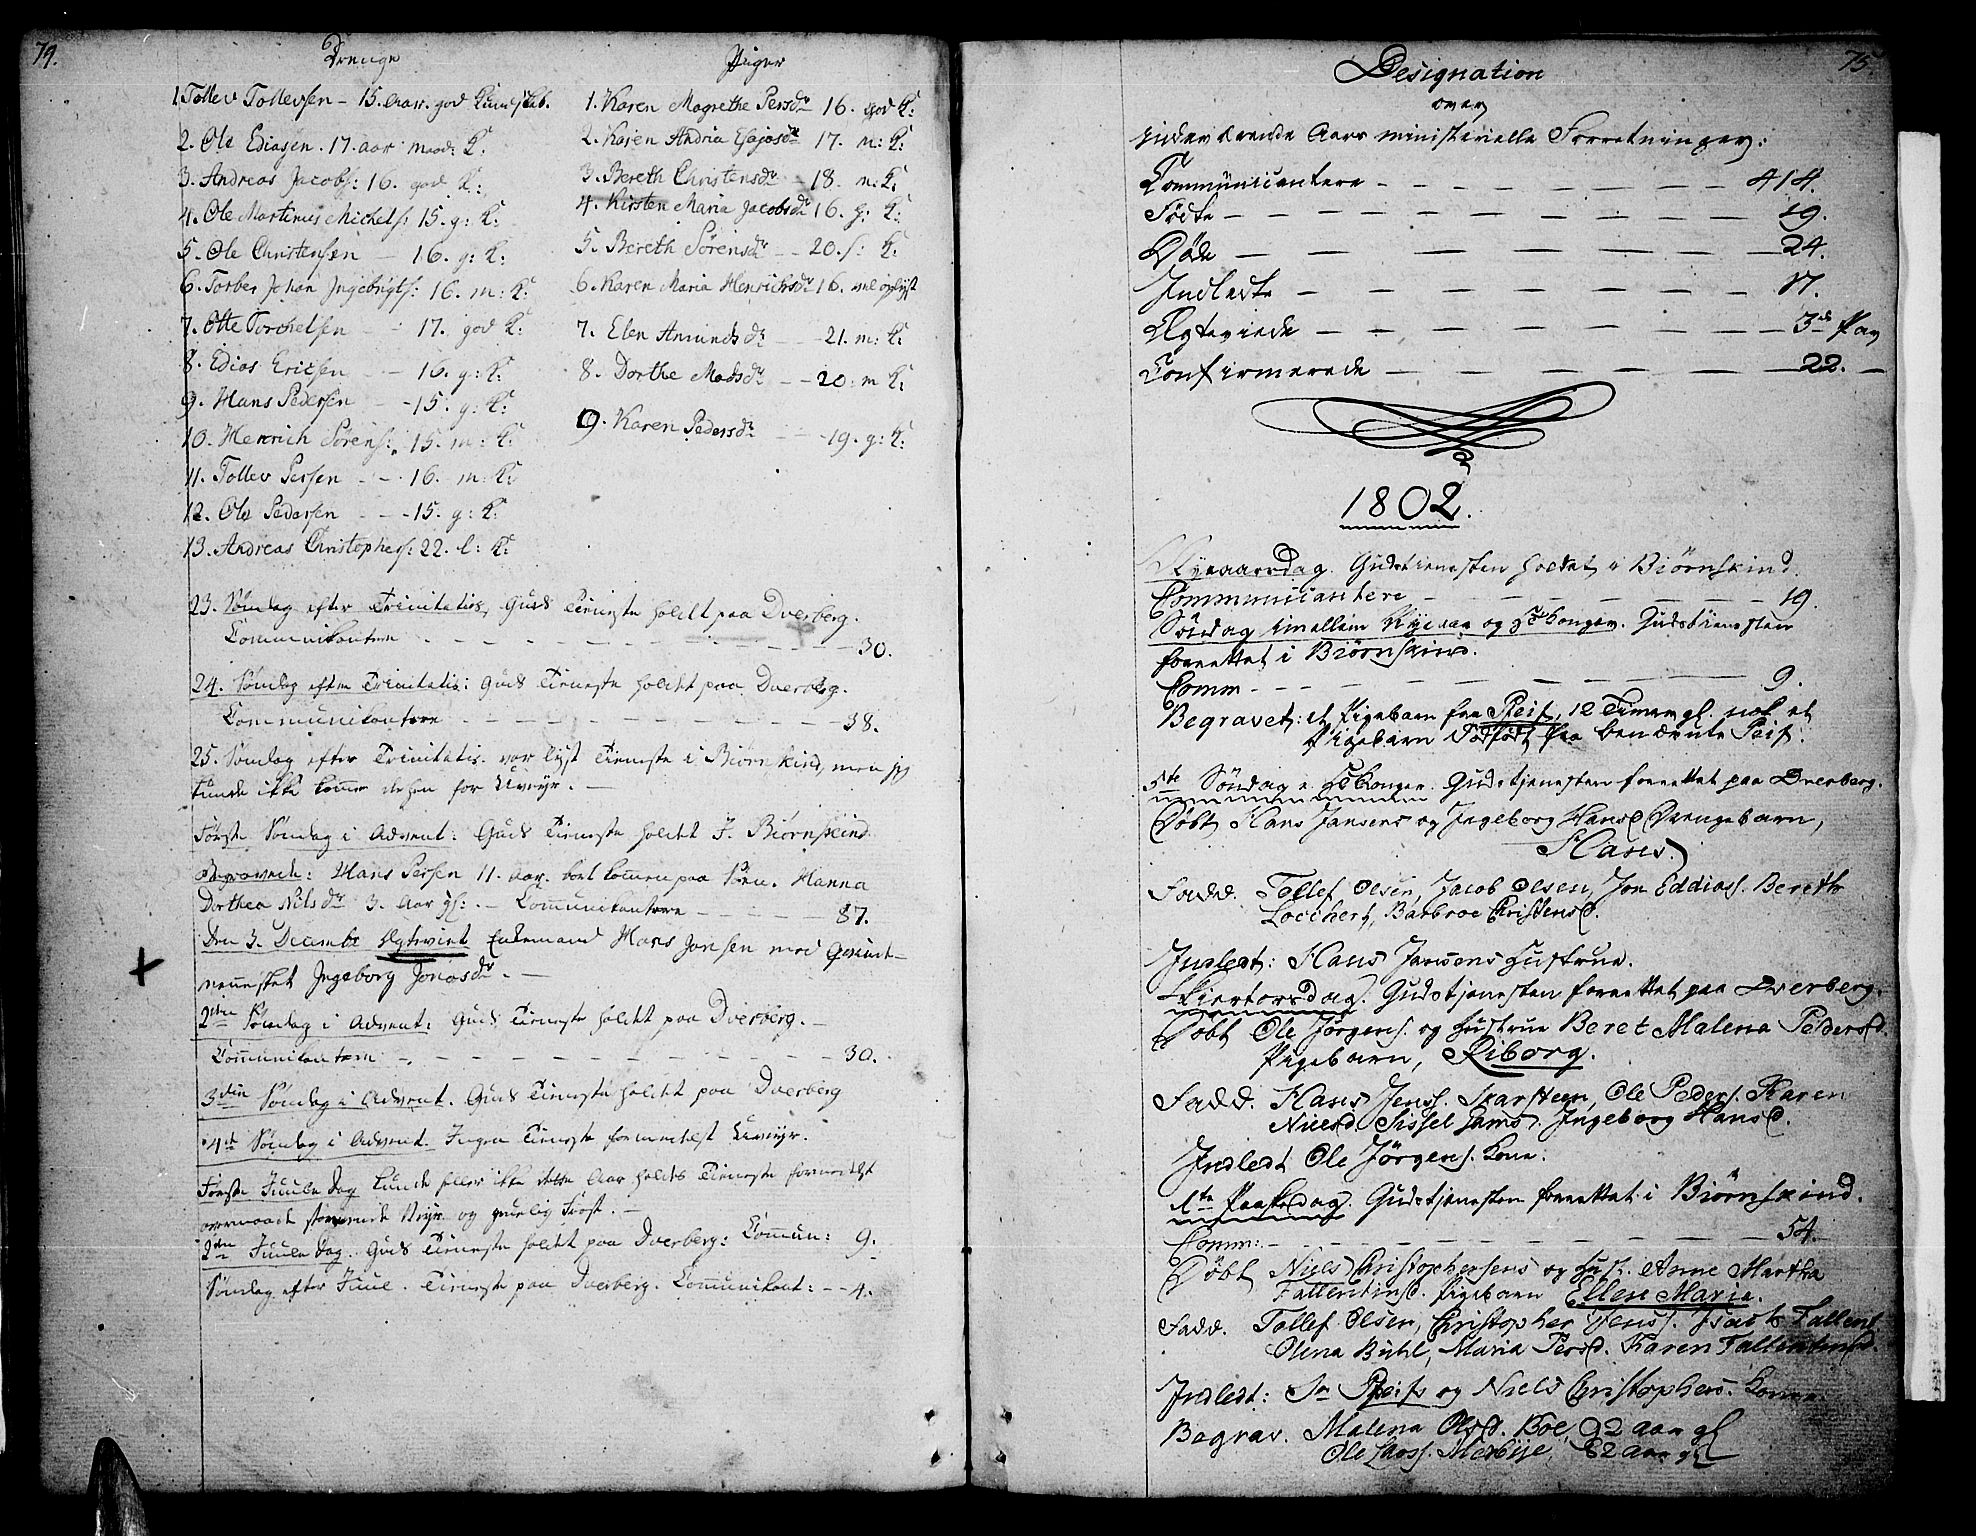 74.
Drenge
1. Tollev Tollevsen - 15. Aar. god Kundskab.
2. Ole Ediasen. 17. aar maad: K:
3. Andreas Jacobs: 16. god K:
4. Ole Martinus Michels: 15. g: K:
5. Ole Christensen - 16. g: K:
6. Torber Johan Ingebrigts: 16. m: K:
7. Otte Torchelsen - 17. god K:
8. Edias Ericsen - - 16. g: K:
9. Hans Pedersen - 15. g: K:
10. Henrich Sörens: 15. m: K:
11. Tollev Persen - - 16. m: K:
12. Ole Pedersen - - 15. g: K:
13. Andreas Christophers: 22. l: K:
Piger
1. Karen Magrethe Persdr 16. god K:
2. Karen Andria Esajasdr 17. m: K:
3. Bereth Christensdr - 18. m: K:
4. Kirsten Maria Jacobsdr 16. g: K:
5. Bereth Sörensdr - - 20. s: K:
6. Karen Maria Henrichsdr 16. vel oplyst
7. Elen Amundsdr - - 21. m: K:
8. Dorthe Madsdr - - 20. m K:
9. Karen Pedersdr - - 19. g: K:
23. Söndag efter Trinitatis, Guds Tieneste holdt paa Dverberg.
Communikantere - - - - - - 30.
24. Söndag efter Trinitatis: Guds Tieneste holdt paa Dverberg.
Communikantere - - - - - - 38.
25. Söndag efter Trinitatis. var lyst Tieneste i Biörnskind, men jeg
kunde ikke komme dehen for Uveyr. -
Förste Söndag i Advent: Guds Tieneste holdt i Biörnskind
Begravede: Hans Persen 11. Aar. bort kommen paa Söen. Hanna
Dorthea Nilsdr 3. Aar gl: - Communikantere - - - - 87.
Den 3. Decembr Ægteviet Enkemand Hans Jansen med Qvinde-
mennisket Ingeborg Jonasdr. -
2den Söndag i Advent: Guds Tieneste holdt paa Dverberg. -
Communikantere - - - - - - 30.
3die Söndag i Advent. Guds Tieneste holdt paa Dverberg
4de Söndag i Advent. Ingen Tieneste formedelst Uveyr.
Förste Juule Dag kunde heller ikke dette Aar holdes Tieneste formedelst
overmaade stormende Veyr og gruelig Frost. -
2den Juule Dag. Guds Tieneste holdt paa Dverberg: Commun: 9.
Söndag efter Juul. Tieneste paa Dverberg. Communikant: - - 4.
75.
Designation
over
indeværende Aars ministerielle Forretninger:
Communicantere - - - - - - 414.
Födte - - - - - - 19.
Döde - - - - - - 24.
Indledte - - - - - - 17.
Ægteviede - - - - - - 3de Par
Confirmerede - - - - - - 22. -
1802.
Nyeaarsdag. Gudstienesten holdet i Biörnskind.
Communicantere - - - - - - 19.
Söndag imellem Nyeaar og H 3 Konger. Gudstienesten
forrettet i Biörnskind.
Comm - - - - - - 9.
Begravet: et Pigebarn fra Steif, 12 Timer gl. nok et
Pigebarn dödfödt fra bemældte Steif.
5te Söndag e. H 3 Konger. Gudstjenesten forrettet paa Dverberg.
Döbt Hans Jansens og Ingeborg Hansd. Drengebarn,
Hans.
Fadd. Tollef Olsen, Jacob Olsen, Jon Eddiass. Berethe
Lochert, Barbroe Christensd.
Indledt: Hans Jansens Hustrue.
Skiertorsdag. Gudstjenesten forrettet paa Dverberg.
Döbt Ole Jörgens. og Hustrue Beret Malena Pedersd.
Pigebarn, Riborg.
Fadd. Hans Jenss. Skarsteen, Ole Peders. Karen
Nielsd. Sissel Jams. Ingeborg Hansd.
Indledt Ole Jörgens. Kone.
1te Paaskedag. Gudstjenesten forrettet i Biörnskind.
Comm: - - - - - - 54.
Döbt Niels Christophersens og Hust. Anne Martha
Fallentinsd. Pigebarn Ellen Maria.
Fadd. Tollef Olsen, Christopher Jenss. Isach Fallent.
Olena Buhl, Maria Persd. Karen Fallentinsd.
Indledt: Sr Steifs og Niels Christophers. Koner.
Begrav. Malena Olsd. Böe, 92 aar gl
Ole Larss. 82 aar gl